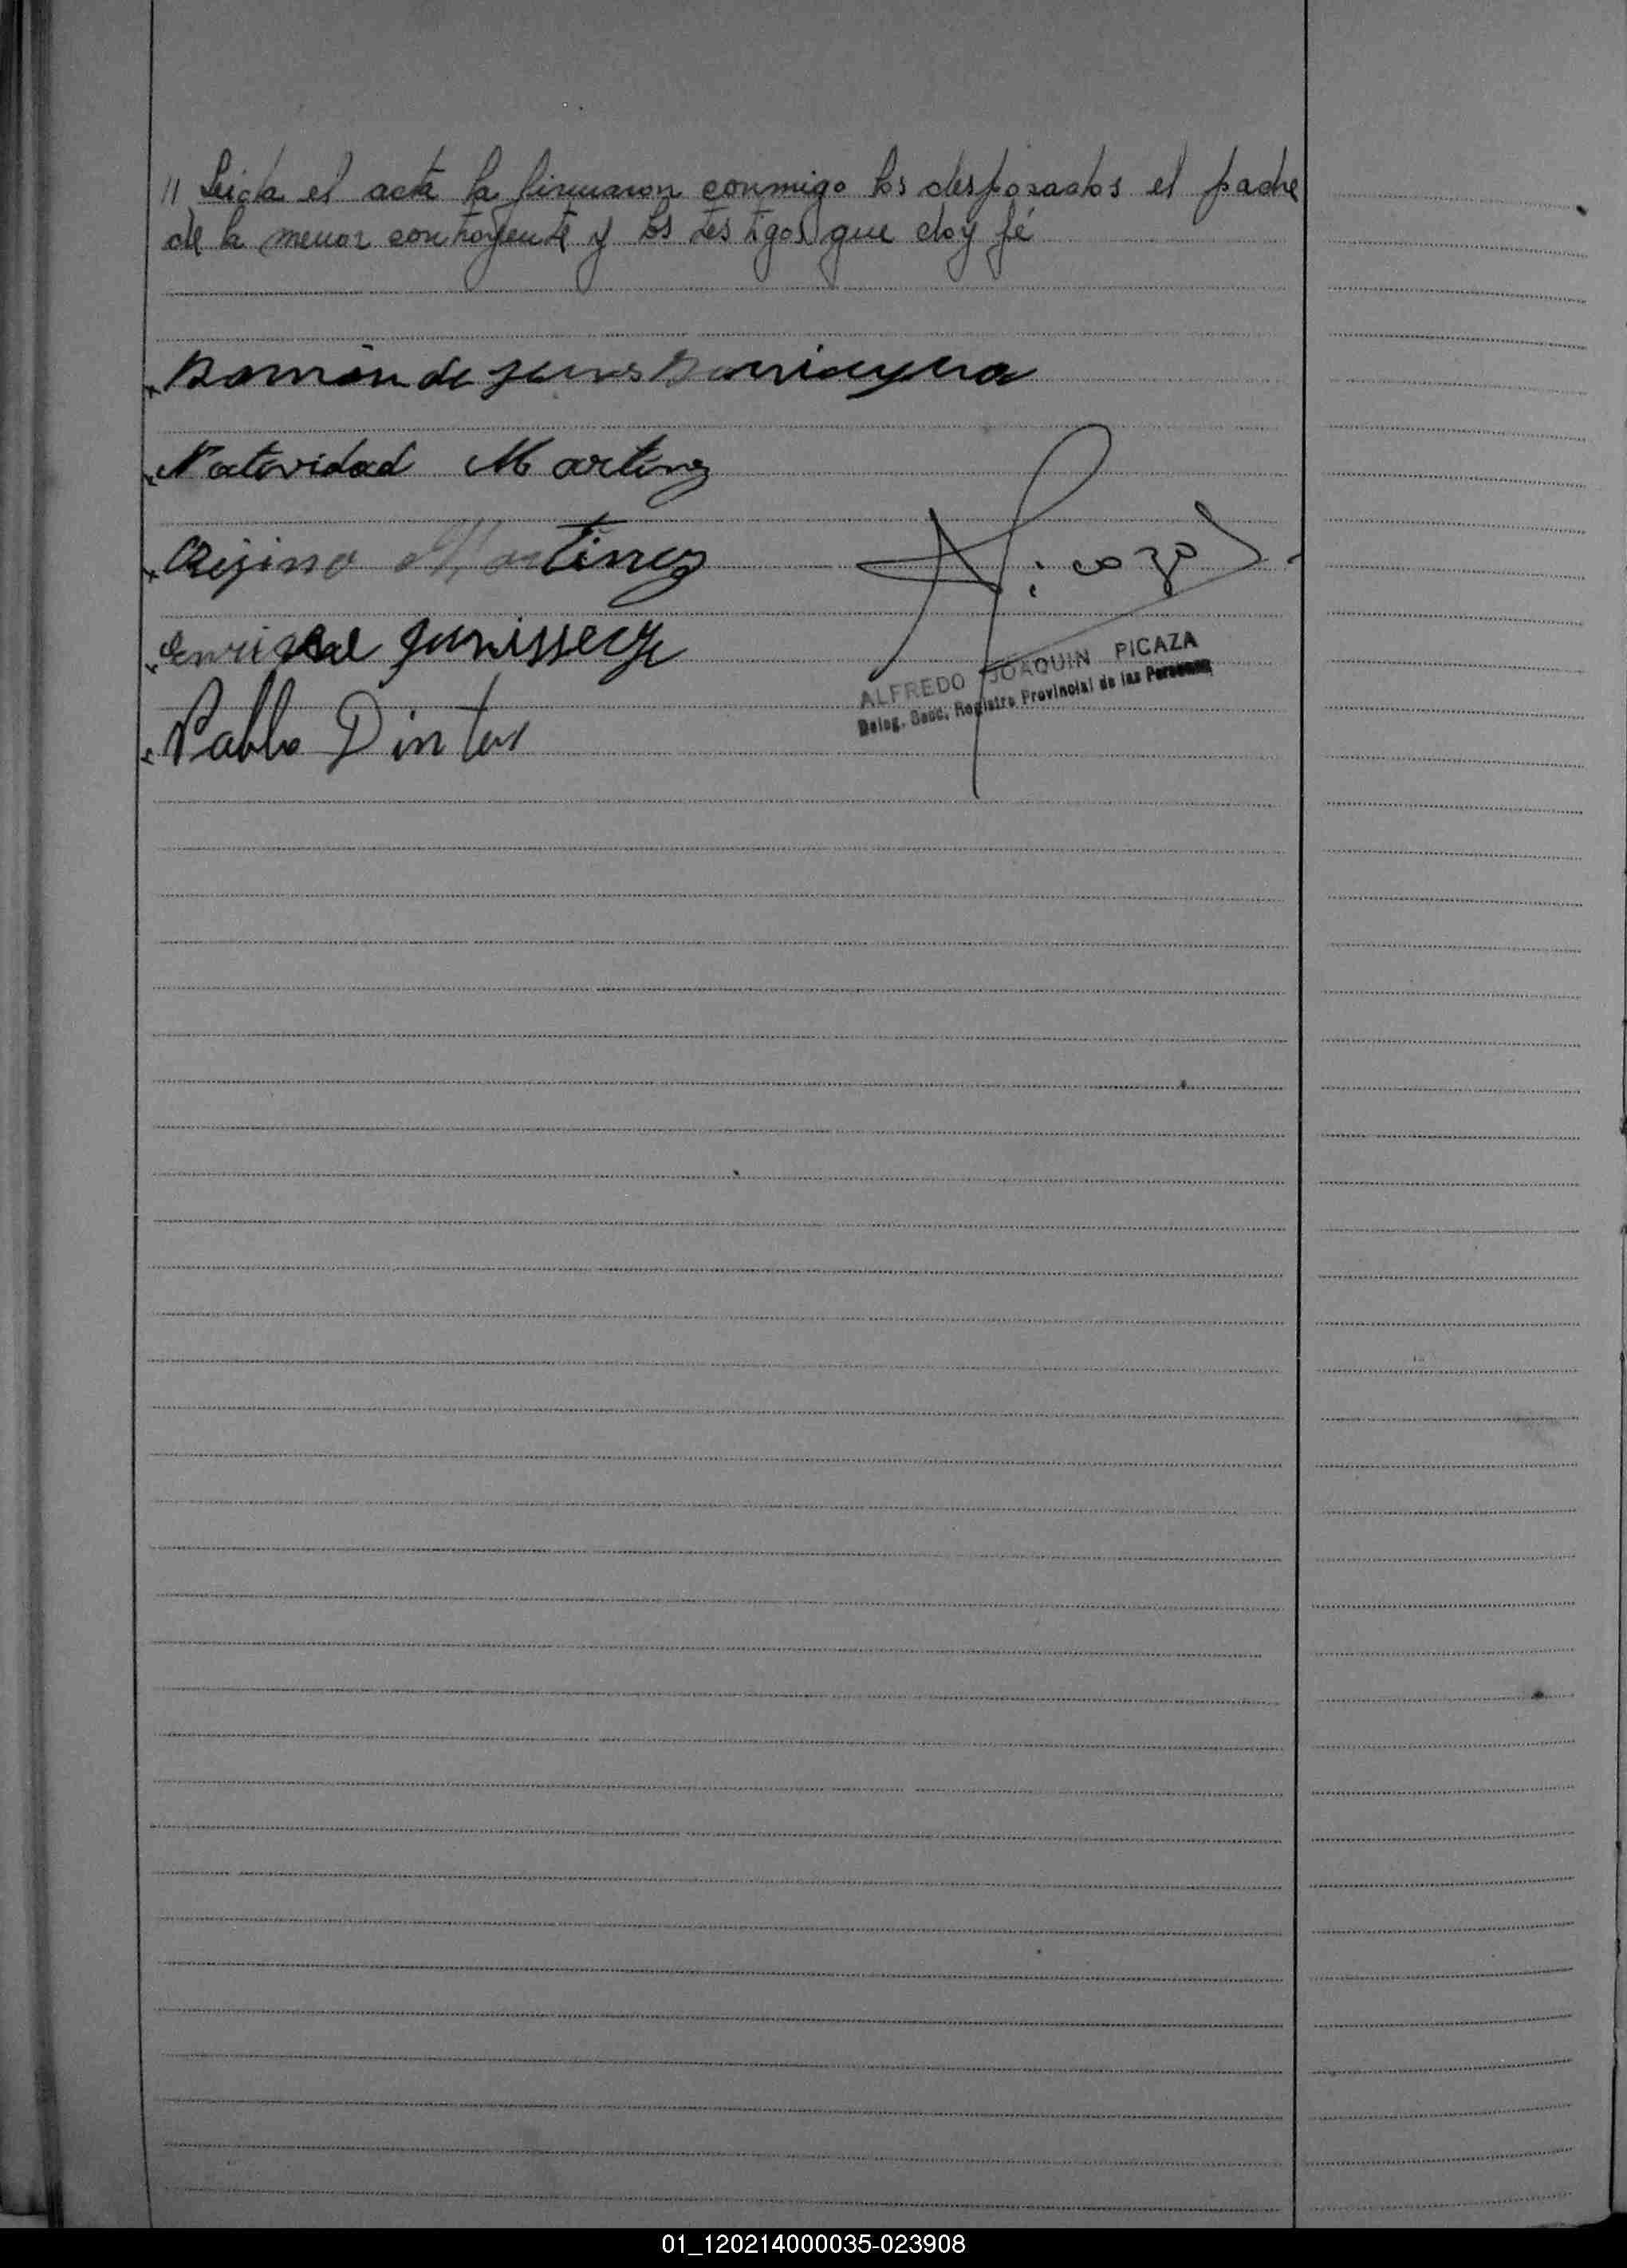 // Leida el acta la firmaron conmigo los desposados el padre
de la menor contrayente y los testigos que doy fé
Ramón de Jesus
Natividad Martinez
Martinez
Enrique
Pablo
A Picaza
ALFREDO JOAQUIN PICAZA
Deleg. Secc. Registro Provincial de las Personas
01_120214000035-023908